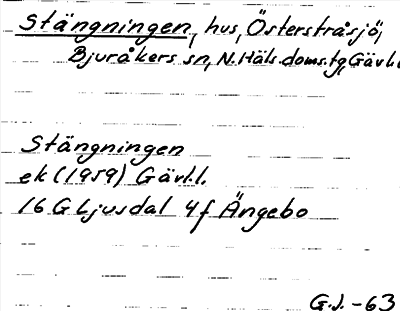 Stängningen, hus, Österstråsjö,
Bjuråkers sn, N. Häls. doms. tg, Gävl.
Stängningen
ek (1959) Gävl.l.
16 G Ljusdal 4f Ängebo
G.J. -63